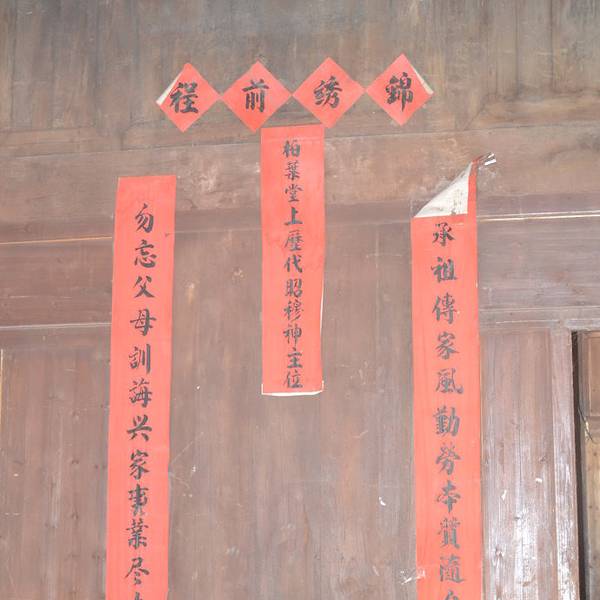 錦绣前程
柏葉堂上歷代昭穆神主位
承祖傳家風勤勞本質隨
勿忘父母訓誨兴家事業尽